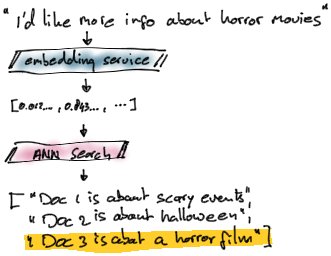 "I'd like more info about horror movies"
// embedding service //
[0.012..., 0.843..., ...]
// ANN Search //
["Doc 1 is about scary events",
"Doc 2 is about halloween",
"Doc 3 is abat a horror film"]